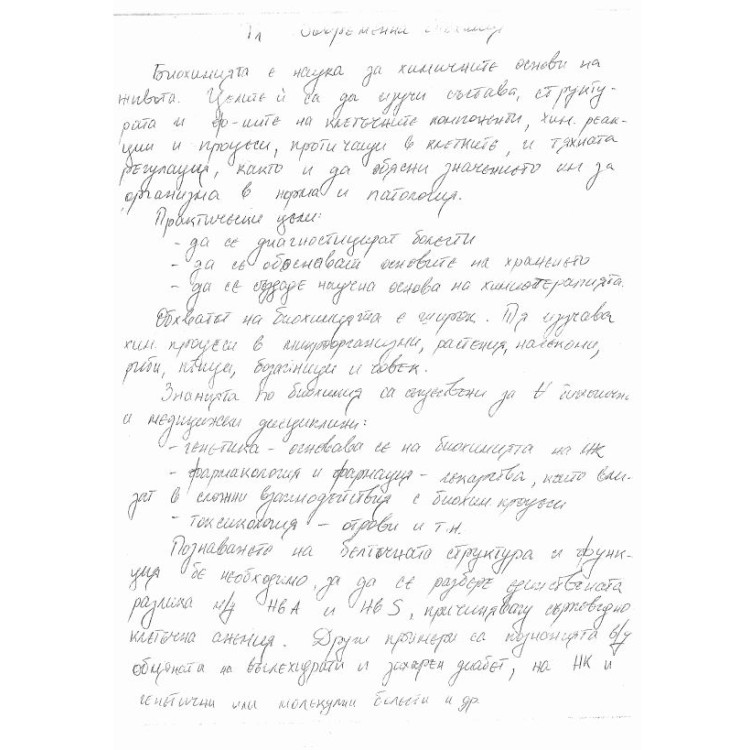 Биохимията е наука за химичните основи на
живота. Целите ѝ са да изучи състава, структу-
рата и ф-иите на клетъчните компоненти, хим. реак-
ции и процеси, протичащи в клетките, и тяхната
регулация, както и да обясни значението им за
организма в норма и патология.
Практически цели:
- да се диагностицират болести
- да се обосноват основите на храненето
- да се създаде научна основа на химиотерапията.
Обхватът на биохимията е широк. Тя изучава
хим. процеси в микроорганизми, растения, насекоми,
риби, птици, бозайници и човек.
Знанията по биохимия са съществени за ∀
и медицински дисциплини:
- генетика - основава се на биохимията на НК
- фармакология и фармация - лекарства, които вли-
зат в сложни взаимодействия с биохим процеси
- токсикология - отрови и т.н.
Познаването на белтъчната структура и функ-
ция бе необходимо, за да се разбере единствената
разлика м/у HbA и HbS, причиняващ сърповидно
клетъчна анемия. Други примери са познанията в/у
обмяната на въглехидрати и захарен диабет, на НК и
генетични или молекулни болести и др.